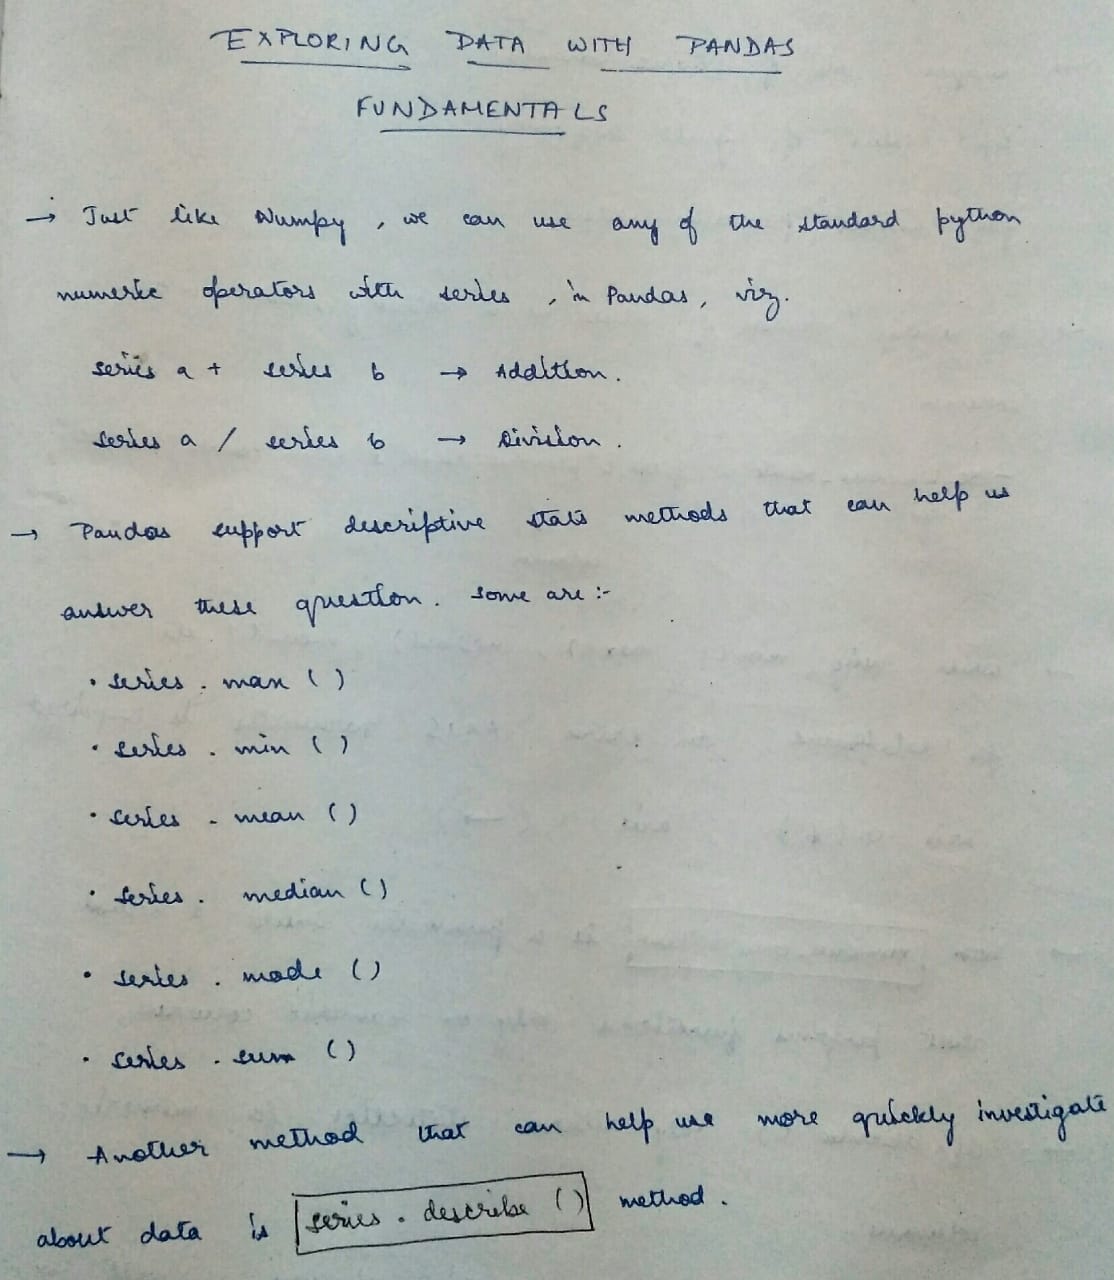 EXPLORING DATA WITH PANDAS
FUNDAMENTALS
→ Just like Numpy, we can use any of the standard python
numeric operators with series, in Pandas, viz.
series a + series b → Addition.
series a / series b → Division.
→ Pandas support descriptive stats methods that can help us
answer these question. Some are :-
• series . max ( )
• series . min ( )
• series . mean ( )
• series . median ( )
• series . mode ( )
• series . sum ( )
→ Another method that can help use more quickly investigate
about data is series . describe ( ) method.